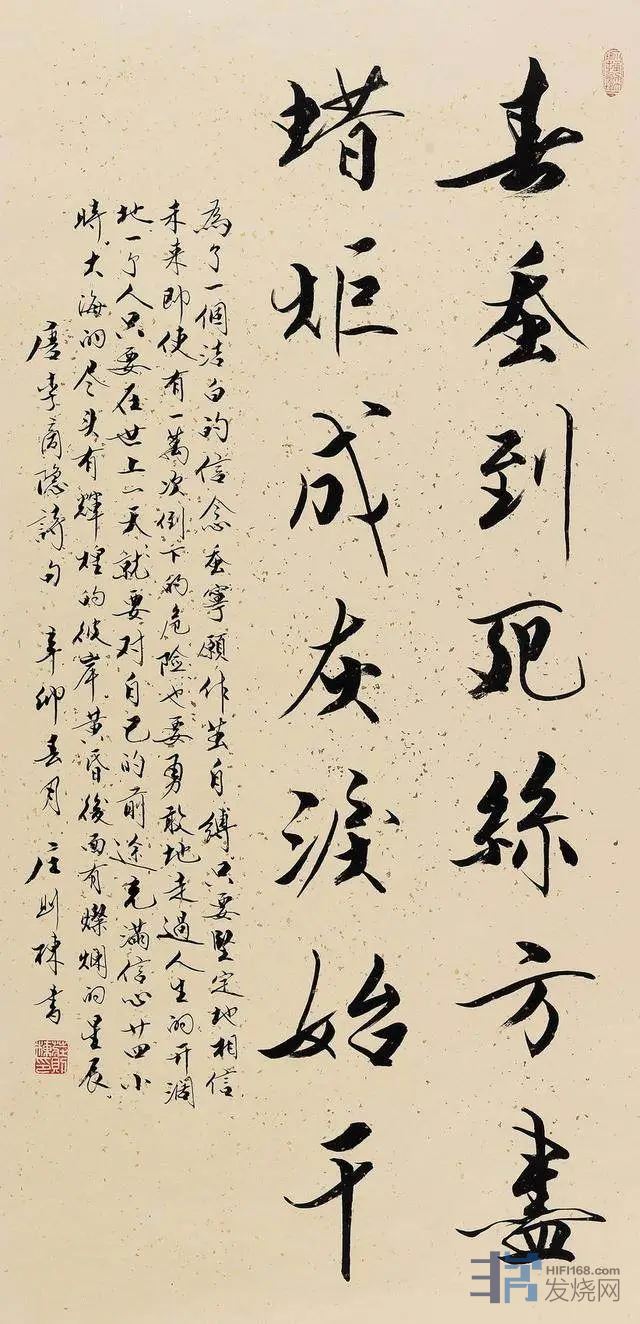 春蚕到死絲方盡
蜡炬成灰淚始干
為了一個洁白的信念蚕寧願作茧自縛只要堅定地相信
未来即使有一萬次倒下的危险也要勇敢地走過人生的开阔
地一个人只要在世上一天就要对自己的前途充滿信心廿四小
時大海的尽头有輝煌的彼岸黄昏後面有燦爛的星辰
唐李商隐詩句 辛卯春月 庄则棟書
HIFI168.com
发烧网